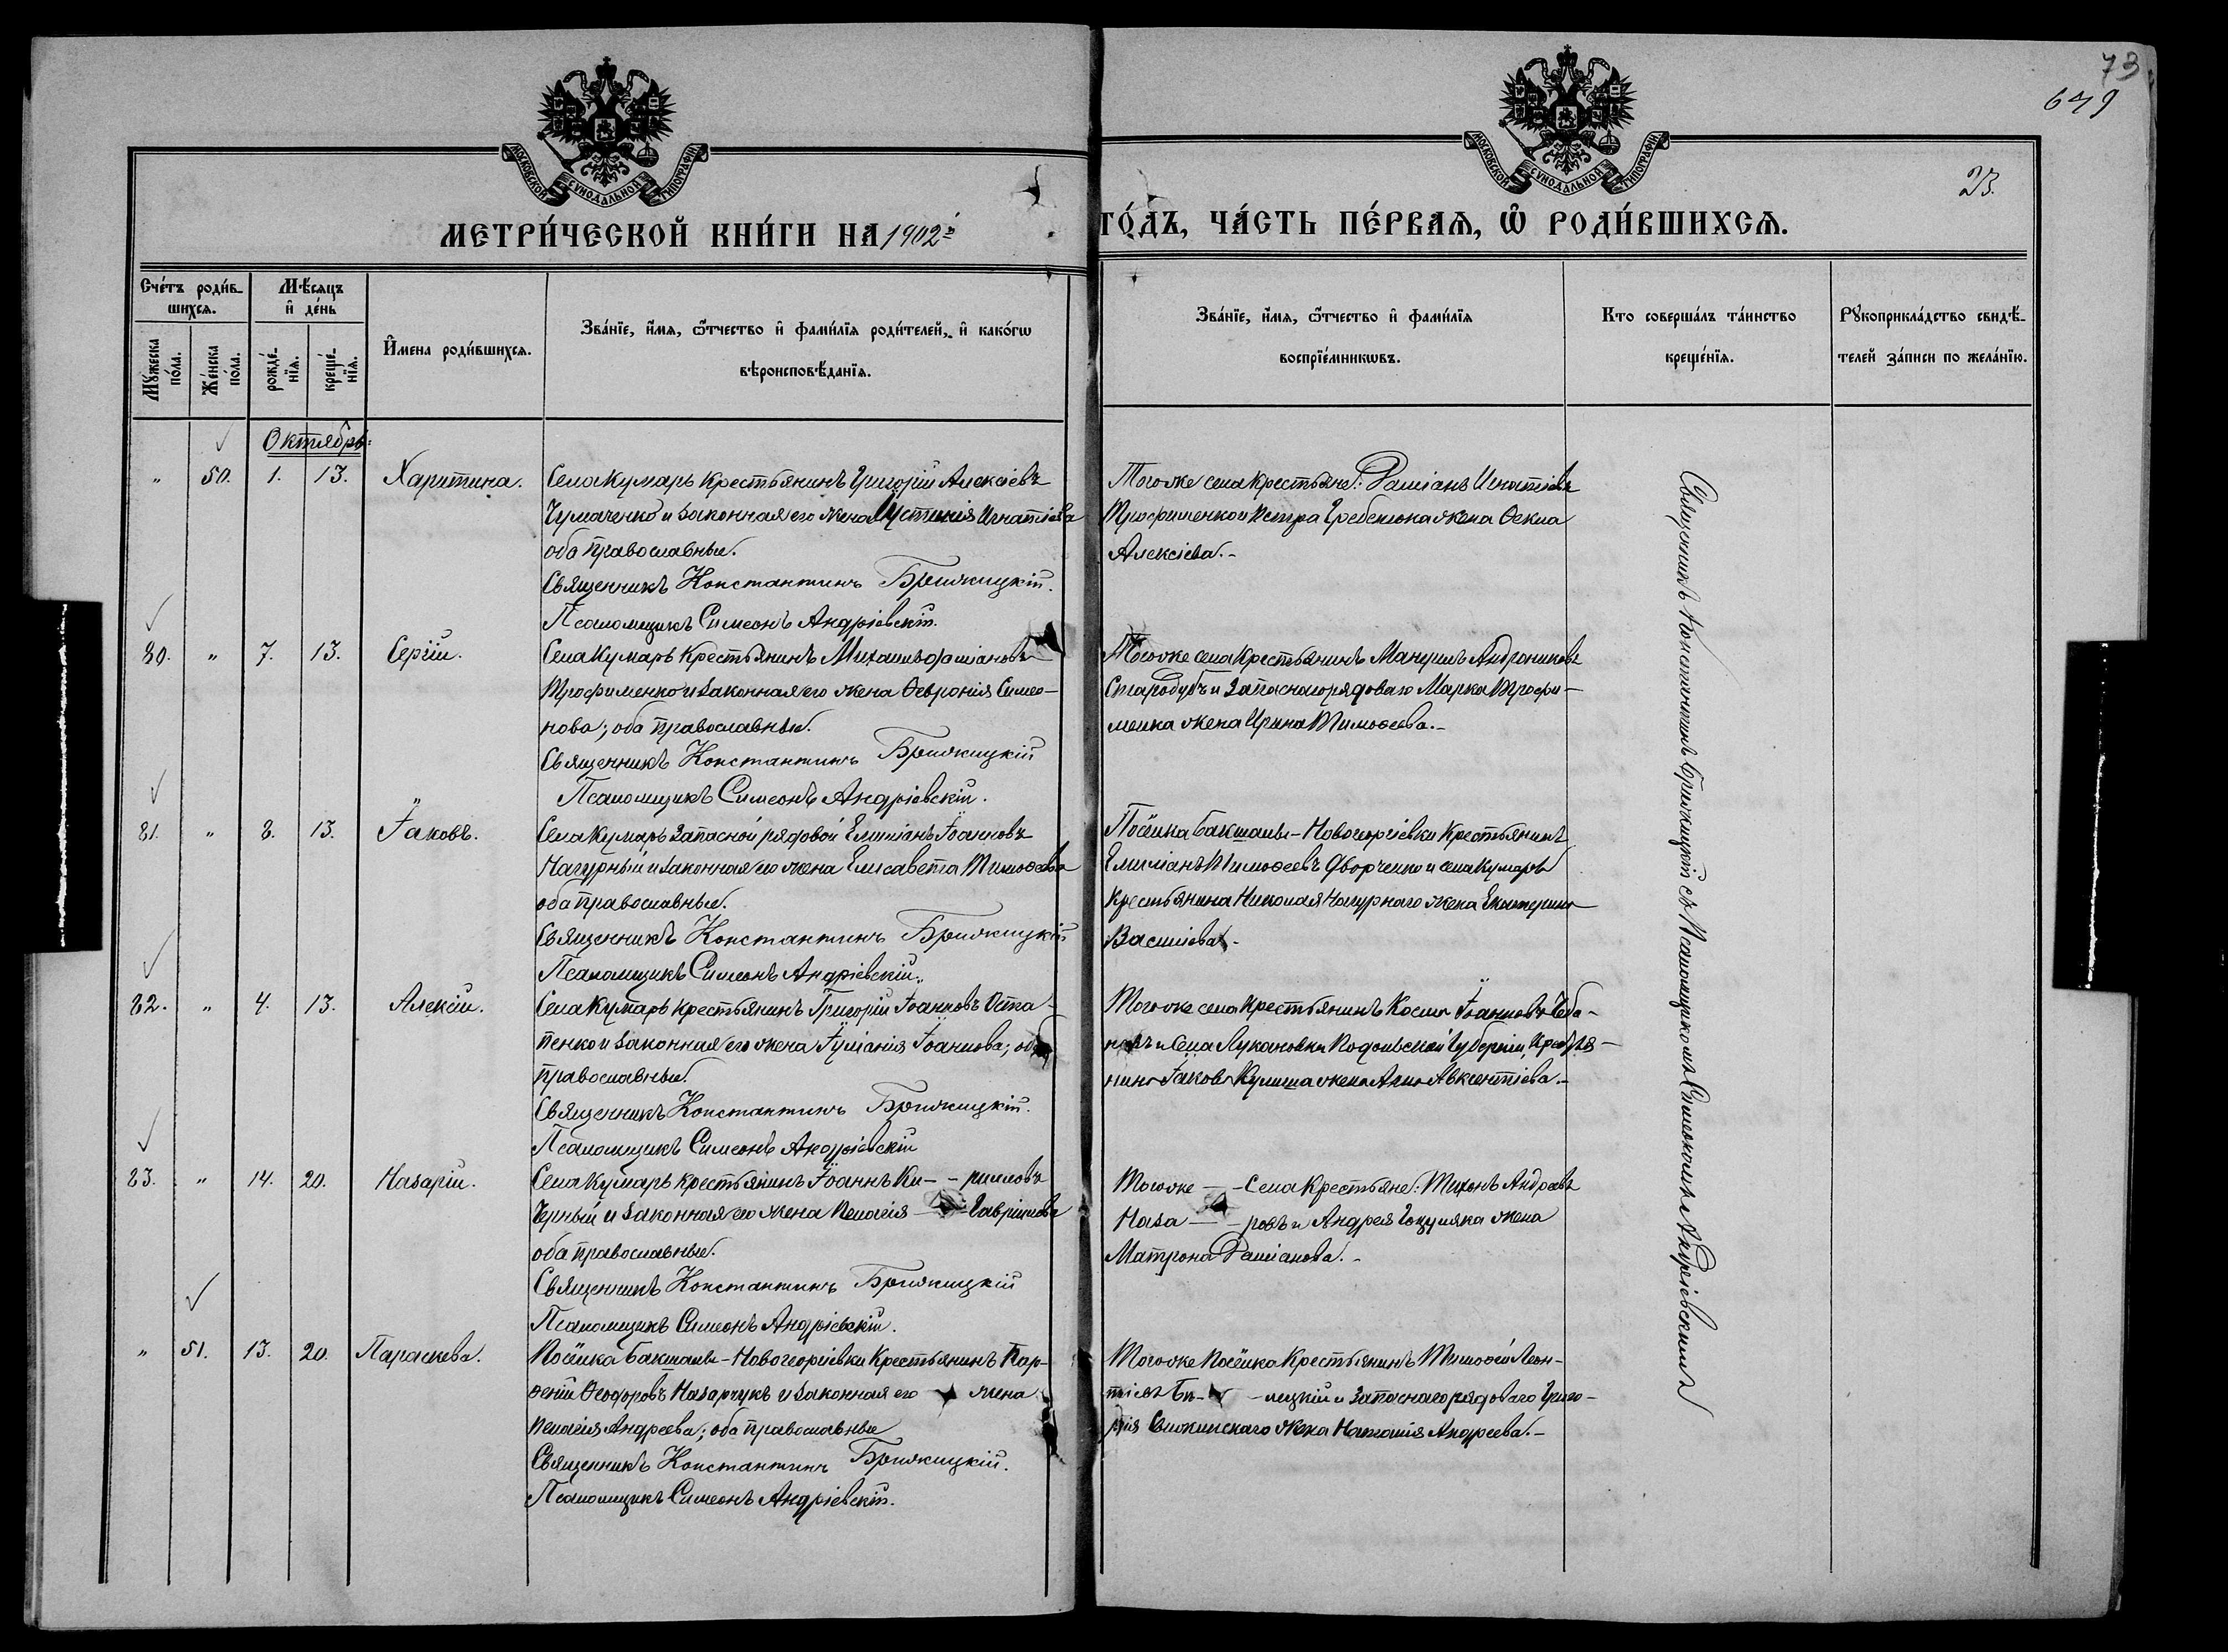 73
679
23.
МОСКОВСКОЙ СѴНОДАЛЬНОЙ ТИПОГРАФІИ
МОСКОВСКОЙ СѴНОДАЛЬНОЙ ТИПОГРАФІИ
МЕТРИ́ЧЕСКОЙ КНИ́ГИ НА 1902й
ГО́ДЪ, ЧА́СТЬ ПЕ́РВАѦ, Ѡ҆ РОДИ́ВШИХСѦ.
Сче́тъ роди́в-
шихсѧ.
Му́жеска по́ла.
Же́нска по́ла.
Мѣ́сѧцъ
и҆ де́нь
рожде́-нїѧ.
креще́-нїѧ.
И҆мена роди́вшихсѧ.
Зва́нїе, и҆́мѧ, ѻ҆́тчество и҆ фами́лїѧ роди́телей, и҆ како́гѡ
вѣроисповѣ́данїѧ.
Зва́нїе, и҆́мѧ, ѻ҆́тчество и҆ фами́лїѧ
воспрїе́мникѡвъ.
Кто соверша́лъ та́инство
креще́нїѧ.
Рꙋкоприкла́дство свидѣ́-
телей за́писи по жела́нїю.
Октябрь:
" 50. 1. 13. Харитина. Села Кумаръ крестьянинъ Григорій Алексіевъ
Чумаченко и законная его жена Иустинія Игнатіева
оба православные.
Священникъ Константинъ Брижицкій.
Псаломщикъ Симеонъ Андріевскій.
Тогоже села крестьяне: Даміанъ Игнатіевъ
Трофименко и Петра Гребенюка жена Ѳекла
Алексіева.-
80. " 7. 13. Сергій. Села Кумаръ крестьянинъ Михаилъ Даміановъ
Трофименко и законная его жена Ѳевронія Симео-
нова; оба православные.
Священникъ Константинъ Брижицкій
Псаломщикъ Симеонъ Андріевскій.
Тогоже села крестьянинъ Мануилъ Андрониковъ
Стародубъ и запаснаго рядоваго Марка Трофи-
менка жена Ирина Тимоѳеева.-
81. " 8. 13. Іаковъ. Села Кумаръ запасной рядовой Емиліанъ Іоанновъ
Нагурный и законная его жена Елисавета Тимоѳеева
оба православные.
Священникъ Константинъ Брижицкій
Псаломщикъ Симеонъ Андріевскій.
Посёлка Бакшалы-Новогеоргіевки крестьянинъ
Емиліанъ Тимоѳеевъ Дворченко и села Кумаръ
крестьянина Николая Нагурнаго жена Екатерина
Василіева.-
82. " 4. 13. Алексій. Села Кумаръ крестьянинъ Григорій Іоанновъ Оста-
пенко и законная его жена Іуліанія Іоаннова; оба
православные.
Священникъ Константинъ Брижицкій.
Псаломщикъ Симеонъ Андріевскій
Тогоже села крестьянинъ Косма Іоанновъ
и села Лукановки Подольской губерніи, крестья-
нина Іакова Кулиша жена Анна Авксентіева.-
83. " 14. 20. Назарій. Села Кумаръ крестьянинъ Іоаннъ Ки- - рилловъ
Черный и законная его жена Пелагія - Гавріилова
оба православные.
Священникъ Константинъ Брижицкій
Псаломщикъ Симеонъ Андріевскій.
Тогоже - - села крестьяне: Тихонъ Андреевъ
Наза- - ровъ и Андрея Гоцуляка жена
Матрона Даміанова.-
" 51. 13. 20. Параскева. Посёлка Бакшалы-Новогеоргіевки крестьянинъ Пар-
ѳеній Ѳеодоровъ Назарчукъ и законная его жена
Пелагія Андреева; оба православные
Священникъ Константинъ Брижицкій.
Псаломщикъ Симеонъ Андріевскій.
Тогоже посёлка крестьянинъ Тимоѳей Леон-
тіевъ Би- - лецкій и запаснаго рядоваго Григо-
рія жена Наталія Андреева.-
Священникъ Константинъ Брижицкій съ Псаломщикомъ Симеономъ Андріевскимъ